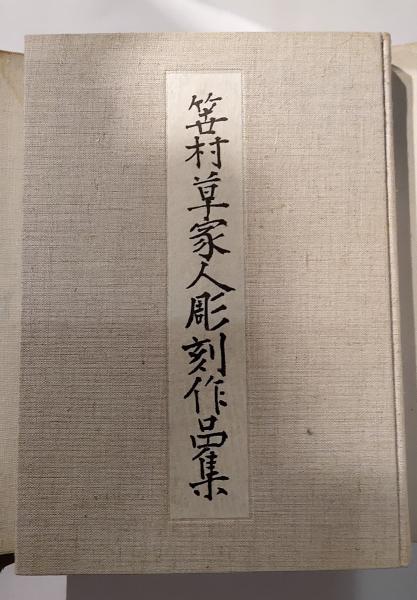 笹村草家人彫刻作品集